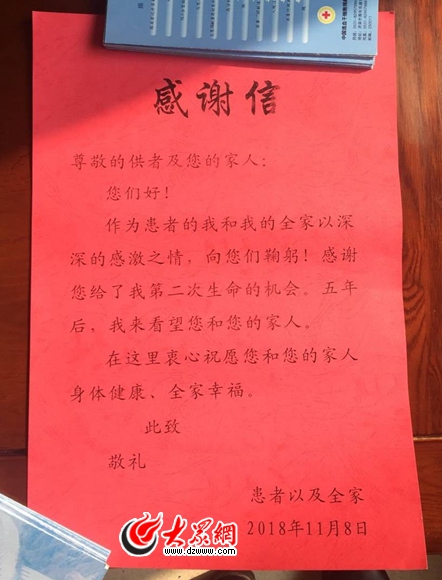 感谢信
尊敬的供者及您的家人：
您们好！
作为患者的我和我的全家以深
深的感激之情，向您们鞠躬！感谢
您给了我第二次生命的机会。五年
后，我来看望您和您的家人。
在这里衷心祝愿您和您的家人
身体健康、全家幸福。
此致
敬礼
患者以及全家
2018年11月8日
大众网
www.dzwww.com